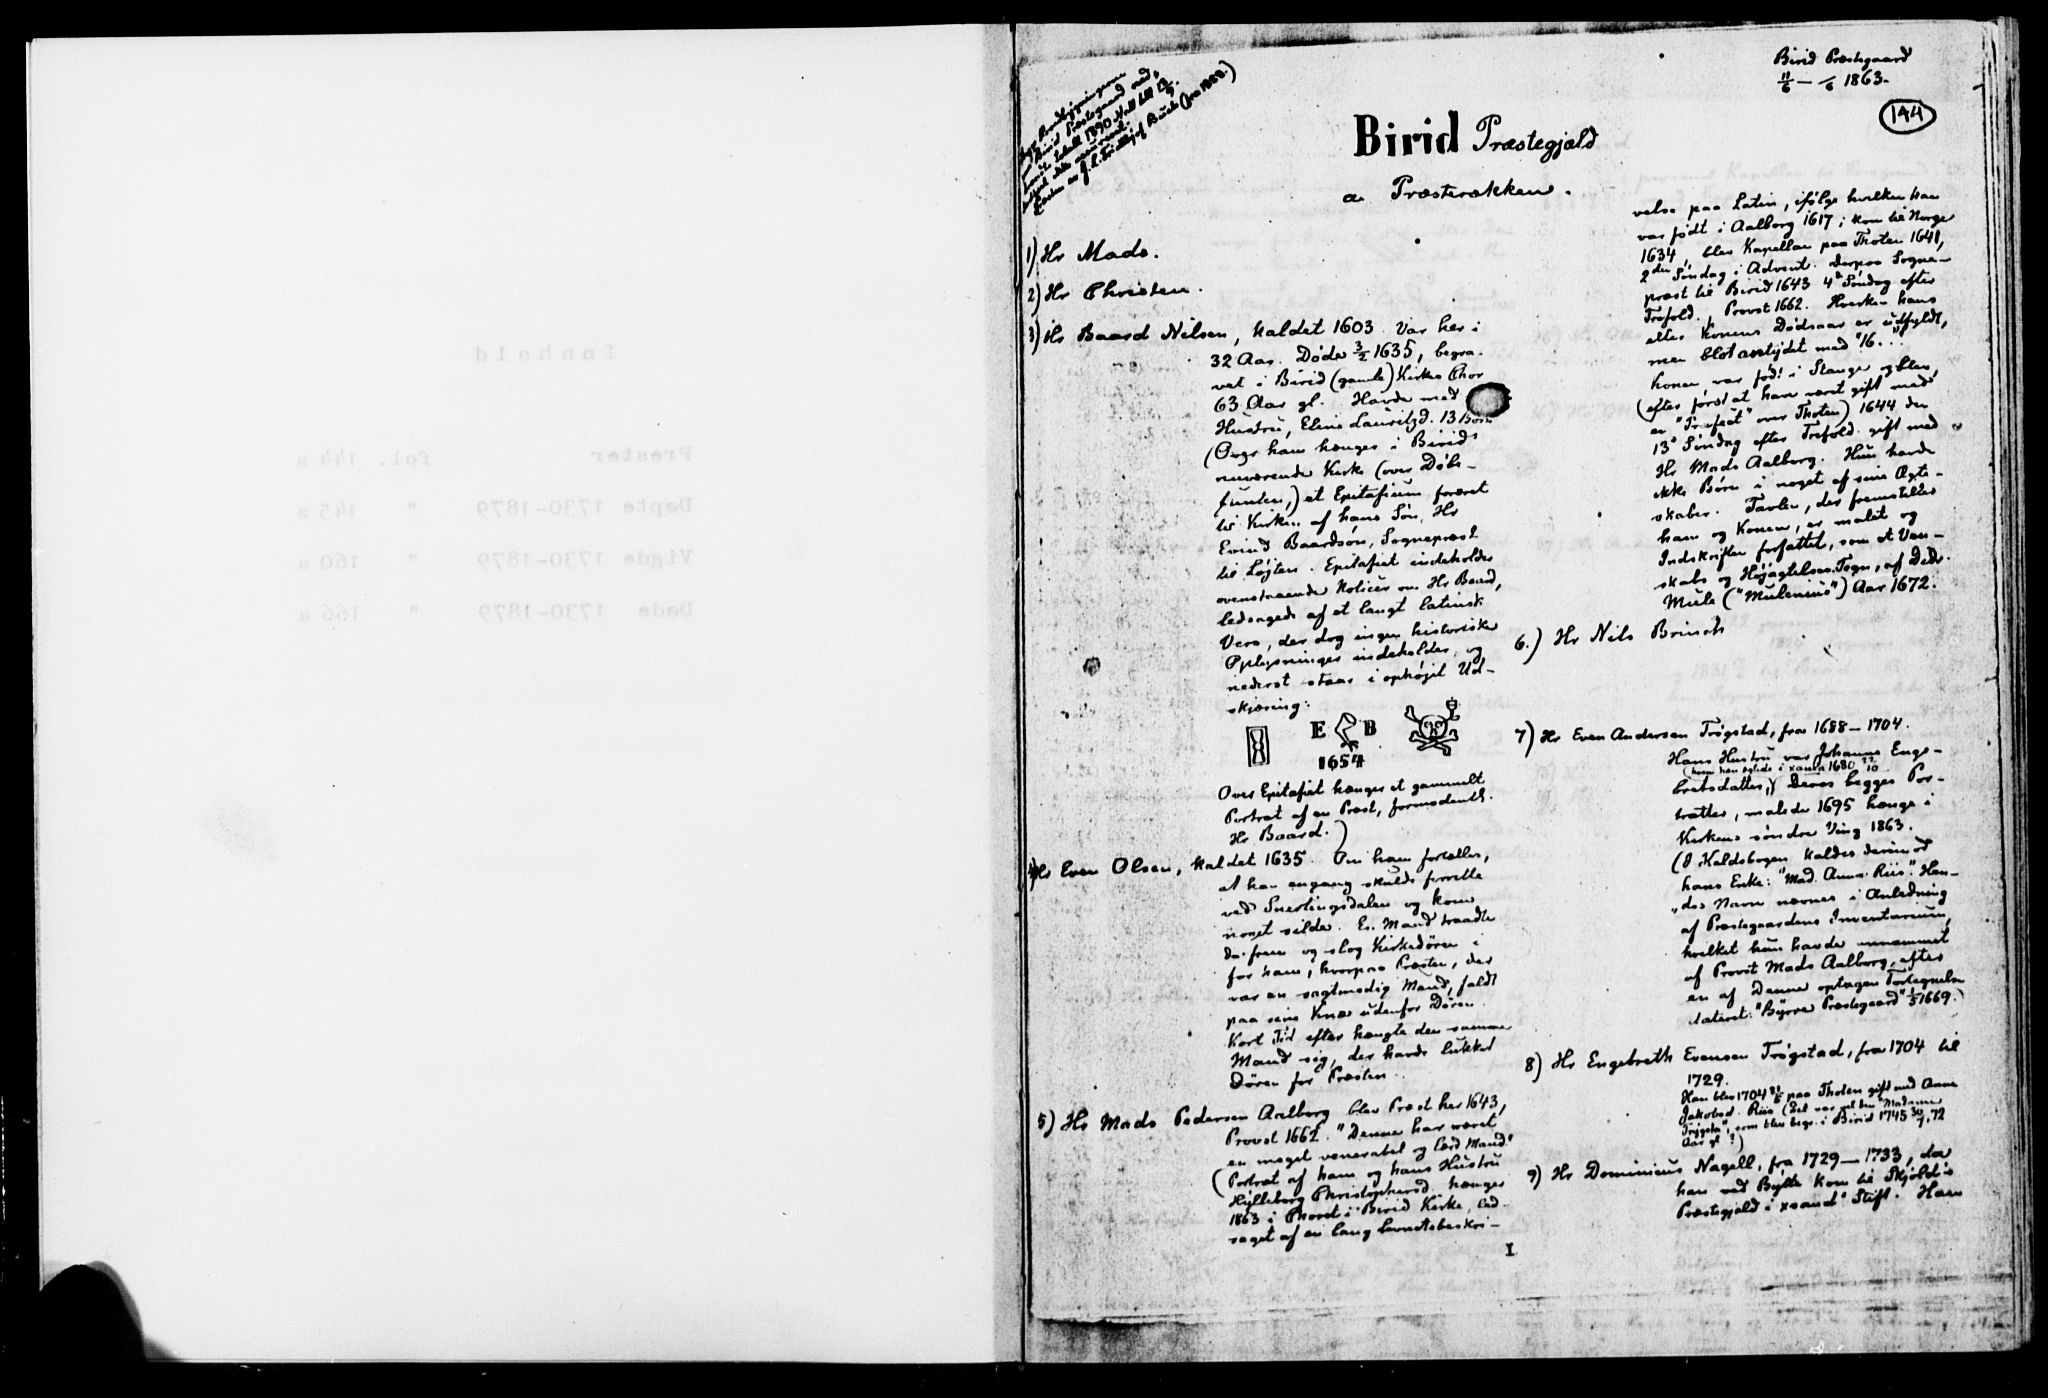 Innhold
Prester fol. 144 a
Døpte 1730-1879 " 145 a
Vigde 1730-1879 " 160 a
Døde 1730-1879 " 166 a
Birid Præstegaard
11/6 — /6 1863.
144
Birid Præstegjæld
a. Præsterækken.
1) Hr Mads.
2) Hr Christen.
3) Hr Baard Nilsen, kaldet 1603. Var her i
32 Aar. Døde 3/2 1635, begra-
vet i Birid (gamle) Kirkes Chor
63 Aar gl. Havde med
Hustru, Eline Lauritzd. 13 Børn
(Over ham hænger i Birids
nuværende Kirke (over Døbe-
funten,) et Epitafium foræret
til Kirken af hans Søn, Hr
Evind Baardsøn, Sognepræst
til Løjten. Epitafiet indeholder
ovenstaaende Notices om Hr Baard,
ledsaget af et langt latinsk
Vers, der dog ingen historiske
Oplysninger indeholder, og
nederst staar i ophøjet Ud-
skjæring:
E B
1654
Over Epitafiet hænger et gammelt
Portræt af en Præst, formodentl.
Hr Baard.)
4) Hr Even Olsen, kaldet 1635. Om ham fortælles,
at han engang skulde forrette
ved Snertingsdalen og kom
noget silde. En Mand traadte
da frem og slog Kirkedøren i
for ham, hvorpaa Præsten, der
var en sagtmodig Mand, faldt
paa sine Knæ udenfor Døren.
Kort Tid efter hængte den samme
Mand sig, der havde lukket
Døren for Præsten.
5) Hr Mads Pedersen Aalborg blev Præst her 1643,
Provst 1662. "Denne har været
en meget venerabel og lærd Mand."
(Portræt af ham og hans Hustru
Hylleborg Christophersd. hænger
1863 i Choret i Birid Kirke, led-
saget af en lang Levnetsbeskri-
velse paa Latin, ifølge hvilken han
var født i Aalborg 1617; kom til Norge
1634, blev Kapellan paa Thoten 1641,
2den Søndag i Advent. Derpaa Sogne-
præst til Birid 1643 4de Søndag efter
Trefold., Provst 1662. Hverken hans
eller Konens Dødsaar er udfyldt,
men blot antydet med "16..."
Konen var fød! i Stange og blev,
(efter først at have været gift med
en "Præfect" over Thoten) 1644 den
13de Søndag efter Trefold. gift med
Hr Mads Aalborg. Hun havde
ikke Børn i noget af sine Ægte-
skaber. Tavlen, der fremstiller
ham og Konen, er malet og
Indskriften forfattet, som et Ven-
skabs og Højagtelses Tegn, af Didr.
Mule ("Mulenius") Aar 1672.
6.) Hr Nils Brinch
7) Hr Even Andersen Trøgstad, fra 1688 — 1704.
Hans Hustru var Johanne Enge-
(hvem han ægtede i Xania 1680 22/10
bretsdatter,) Deres begges Por-
trætter, malede 1695 hænge i
Kirkens søndre Ving 1863.
(I Kaldsbogen kaldes derimod
hans Enke: "Mad. Anna Riis". Hen-
des Navn nævnes i Anledning
af Præstegaardens Inventarium,
hvilket hun havde annammet
af Provst Mads Aalborg, efter
en af Denne optagen Fortegnelse
dateret: "Byrre Præstegaard" 1/5 1669.)
8) Hr Engebreth Evensen Trøgstad, fra 1704 til
1729.
Han blev 1704 21/5 paa Thoten gift med Anne
Jakobsd. Riis (det var vel den "Madame
Trygsta", som blev begr. i Birid 1745 30/7, 72
Aar gl ?)
9) Hr Dominicus Nagell, fra 1729 — 1733, da
han ved Bytte kom til Skjolds
Præstegjæld i Xsands Stift. Hans
I